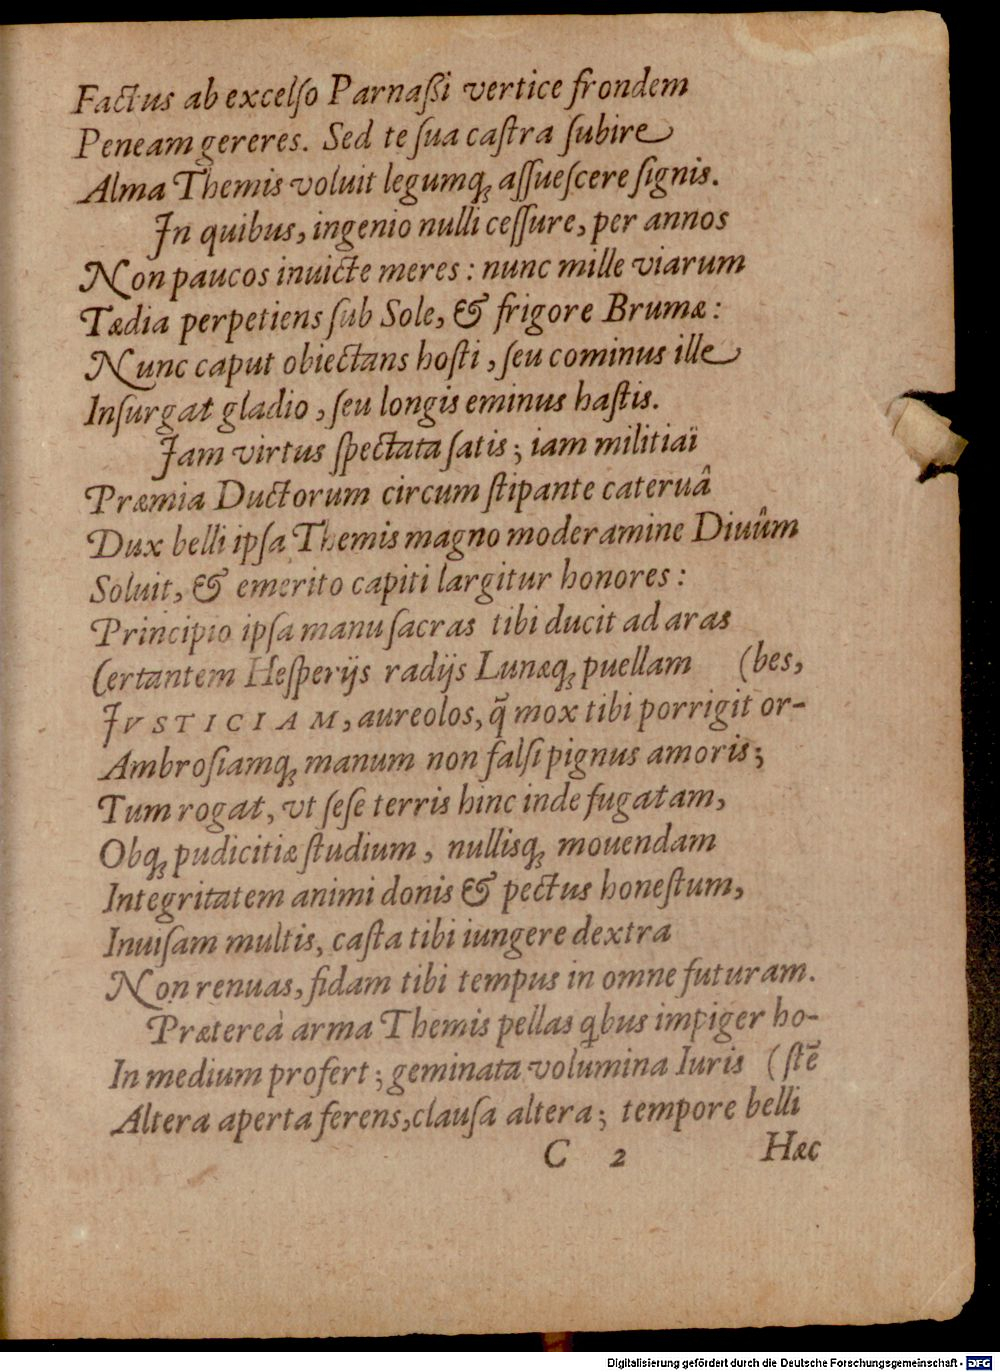 Factus ab excelſo Parnaßi vertice frondem
Peneam gereres. Sed te ſua caſtra ſubire
Alma Themis voluit legumqꝫ aſſueſcere ſignis.
In quibus, ingenio nulli ceſſure, per annos
Non paucos inuicte meres : nunc mille viarum
Tædia perpetiens ſub Sole, & frigore Brumæ :
Nunc caput obiectans hoſti, ſeu cominus ille
Inſurgat gladio, ſeu longis eminus haſtis.
Jam virtus ſpectata ſatis ; iam militiaï
Præmia Ductorum circum ſtipante cateruâ
Dux belli ipſa Themis magno moderamine Diuûm
Soluit, & emerito capiti largitur honores :
Principio ipſa manu ſacras tibi ducit ad aras
Certantem Heſperijs radijs Lunæqꝫ puellam (bes,
JVSTICIAM, aureolos, q̃ mox tibi porrigit or-
Ambroſiamqꝫ manum non falſi pignus amoris ;
Tum rogat, vt ſeſe terris hinc inde fugatam,
Obqꝫ pudicitiæ ſtudium, nullisqꝫ mouendam
Integritatem animi donis & pectus honeſtum,
Inuiſam multis, caſta tibi iungere dextra
Non renuas, fidam tibi tempus in omne futuram.
Prætereà arma Themis pellas qͥbus impiger ho-
In medium profert ; geminata volumina Iuris (ſtē
Altera aperta ferens, clauſa altera ; tempore belli
C 2 Hæc
Digitalisierung gefördert durch die Deutsche Forschungsgemeinschaft - DFG